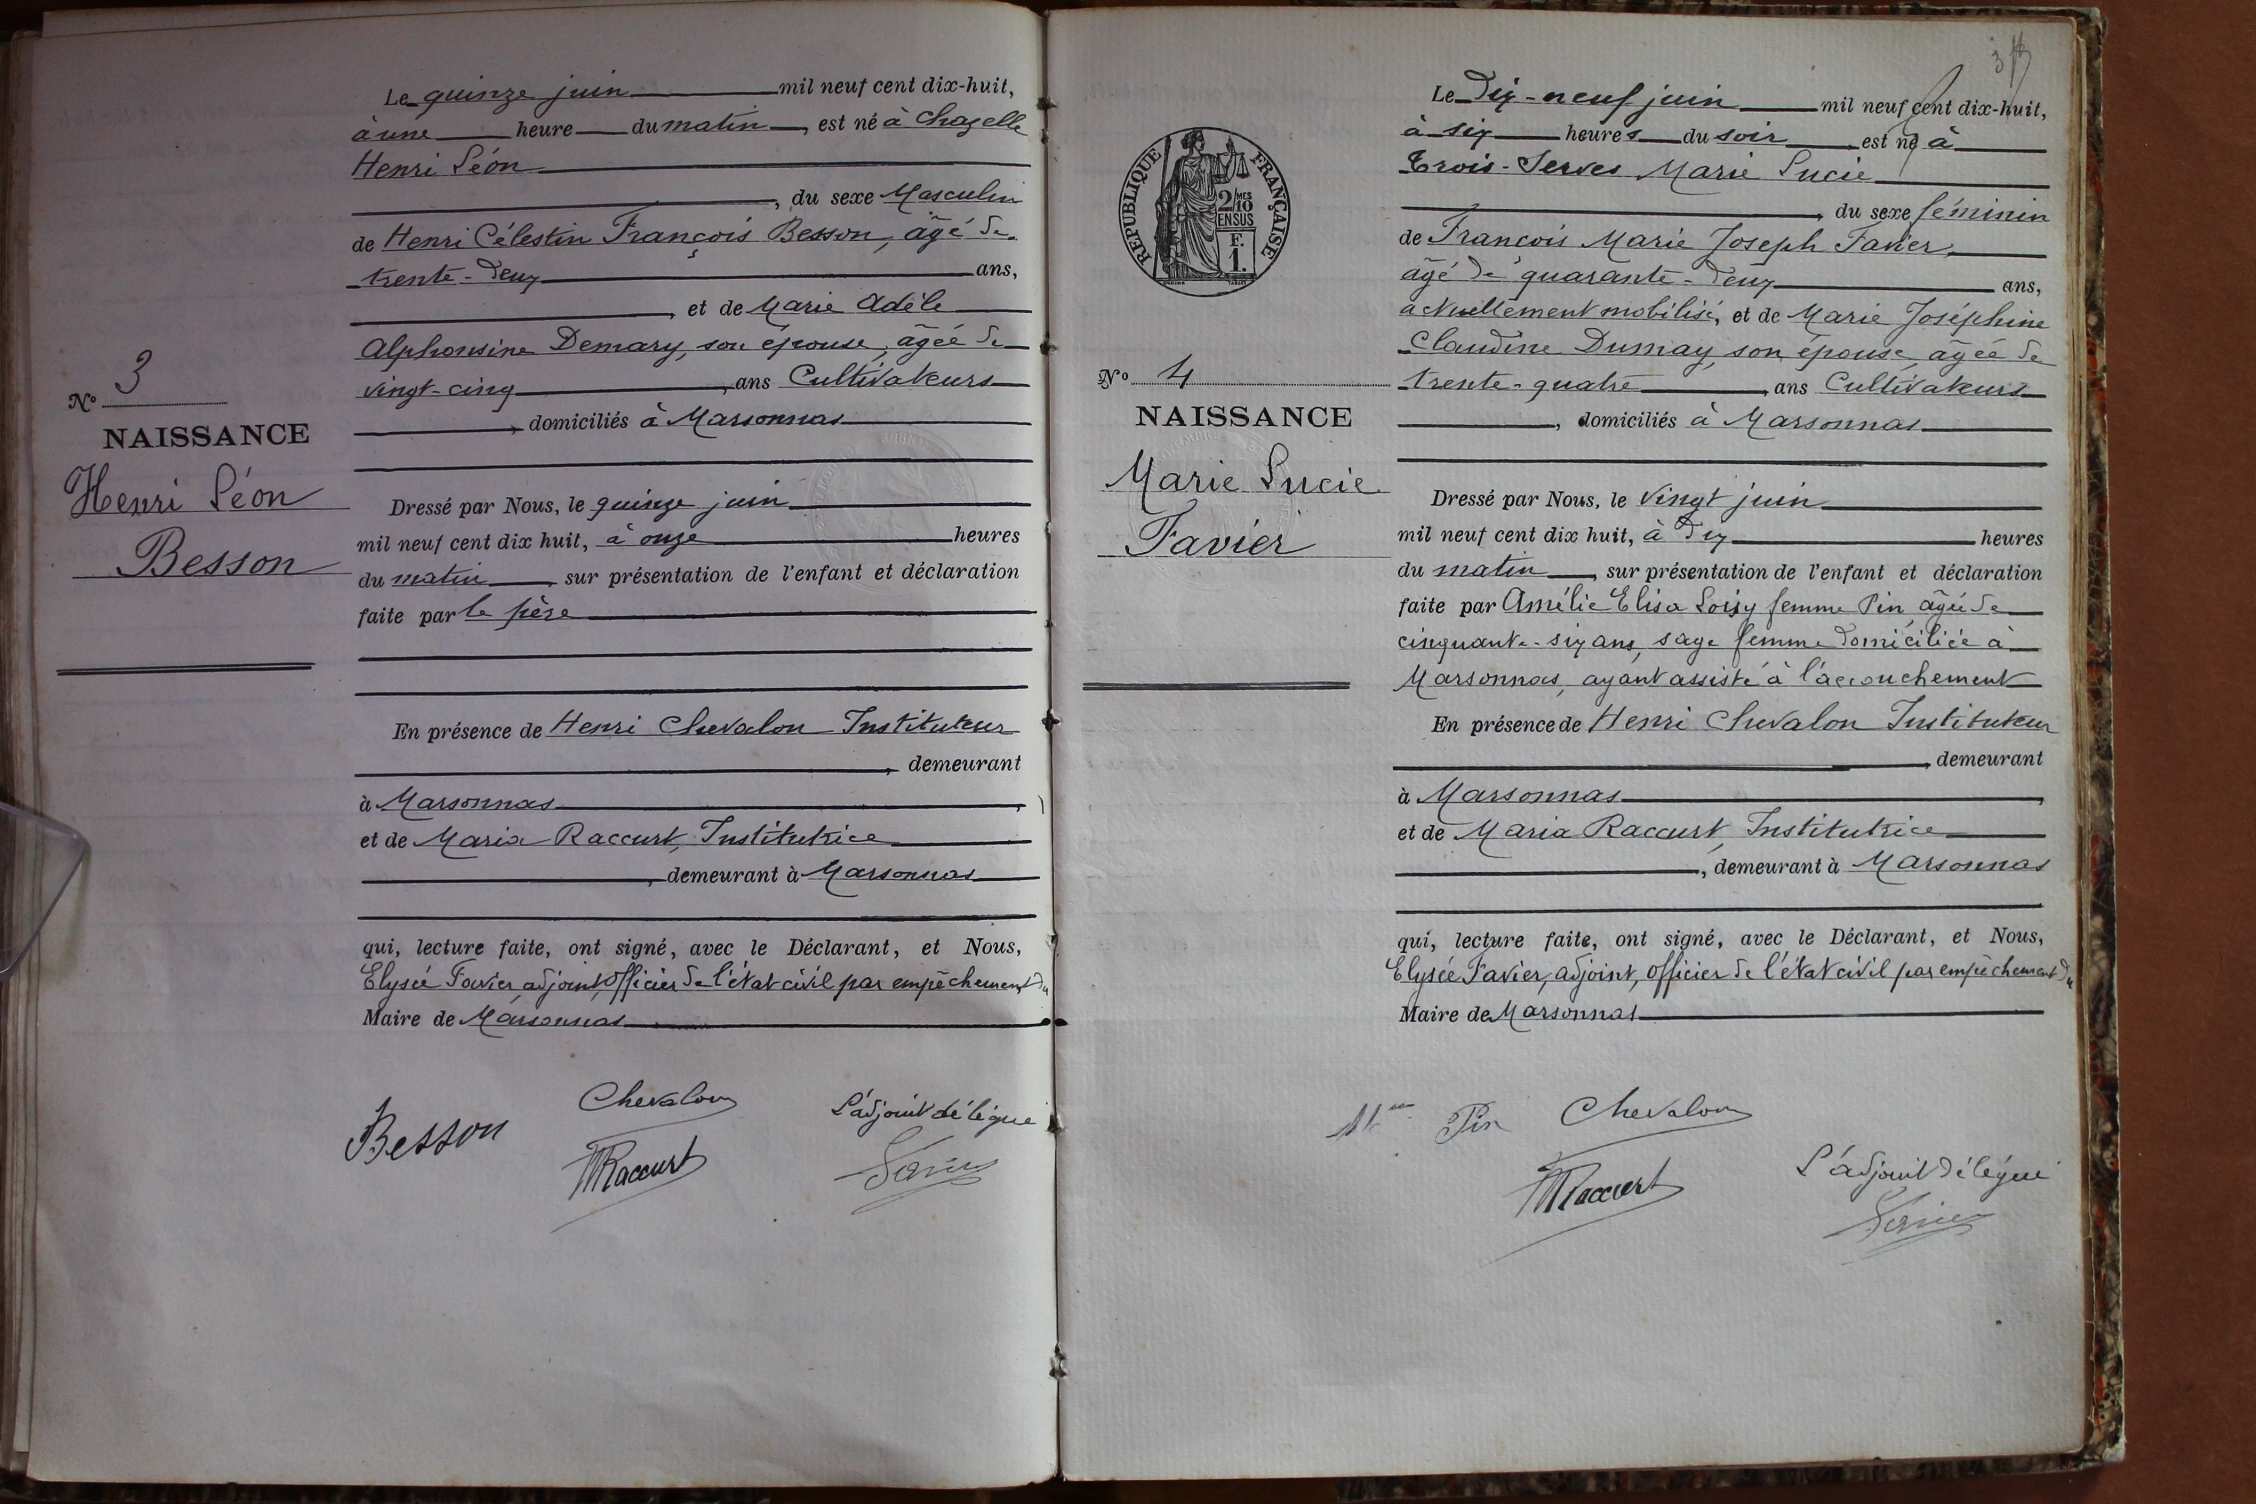 Le quinze juin mil neuf cent dix-huit,
à une heure du matin, est né à Chazelle
Henri Léon
, du sexe Masculin
de Henri Célestin François Besson, âgé de
trente-deux ans,
, et de Marie Adèle
Alphonsine Demary, son épouse, âgée de
vingt-cinq, ans Cultivateurs
, domiciliés à Marsonnas
N° 3
NAISSANCE
Henri Léon
Besson
Dressé par Nous, le quinze juin
mil neuf cent dix huit, à onze heures
du matin, sur présentation de l'enfant et déclaration
faite par le père
En présence de Henri Chevalon Instituteur
, demeurant
à Marsonnas,
et de Maria Raccurt, Institutrice
, demeurant à Marsonnas
qui, lecture faite, ont signé, avec le Déclarant, et Nous,
Elysée Favier adjoint, officier de l'état civil par empêchement du
Maire de Marsonnas
Besson
Chevalon
MRaccurt
L'adjoint délégué
Favier
Le Dix-neuf juin mil neuf cent dix-huit,
à six heures du soir, est né à
Trois-Serves Marie Lucie
, du sexe féminin
de François Marie Joseph Favier,
âgé de quarante-deux ans,
actuellement mobilisé, et de Marie Joséphine
Claudine Dumay, son épouse, âgée de
trente-quatre, ans Cultivateurs
, domiciliés à Marsonnas
REPUBLIQUE FRANÇAISE
2/10 MES
EN SUS
F.
1.
N° 4
NAISSANCE
Marie Lucie
Favier
Dressé par Nous, le vingt juin
mil neuf cent dix huit, à dix heures
du matin, sur présentation de l'enfant et déclaration
faite par Amélie Elisa Loisy femme Pin, âgée de
cinquante-six ans, sage femme domiciliée à
Marsonnas, ayant assisté à l'accouchement
En présence de Henri Chevalon Instituteur
, demeurant
à Marsonnas,
et de Maria Raccurt, Institutrice
, demeurant à Marsonnas
qui, lecture faite, ont signé, avec le Déclarant, et Nous,
Elysée Favier, adjoint, officier de l'état civil par empêchement du
Maire de Marsonnas
Mme Pin
Chevalon
MRaccurt
L'adjoint délégué
Favier